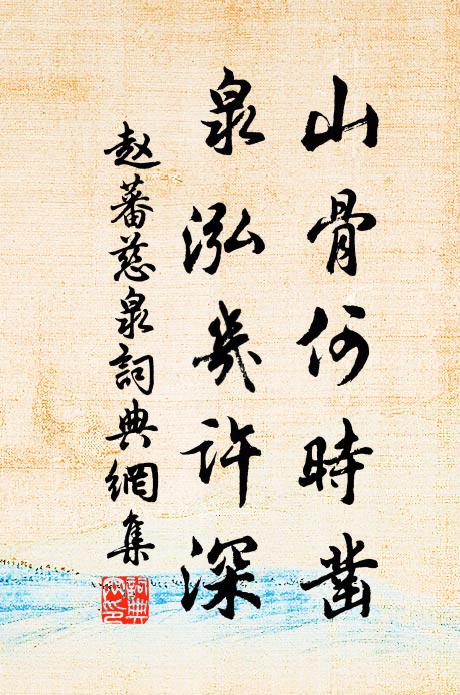 山骨何時凿
泉泓幾许深
赵蕃慈泉詞典網集